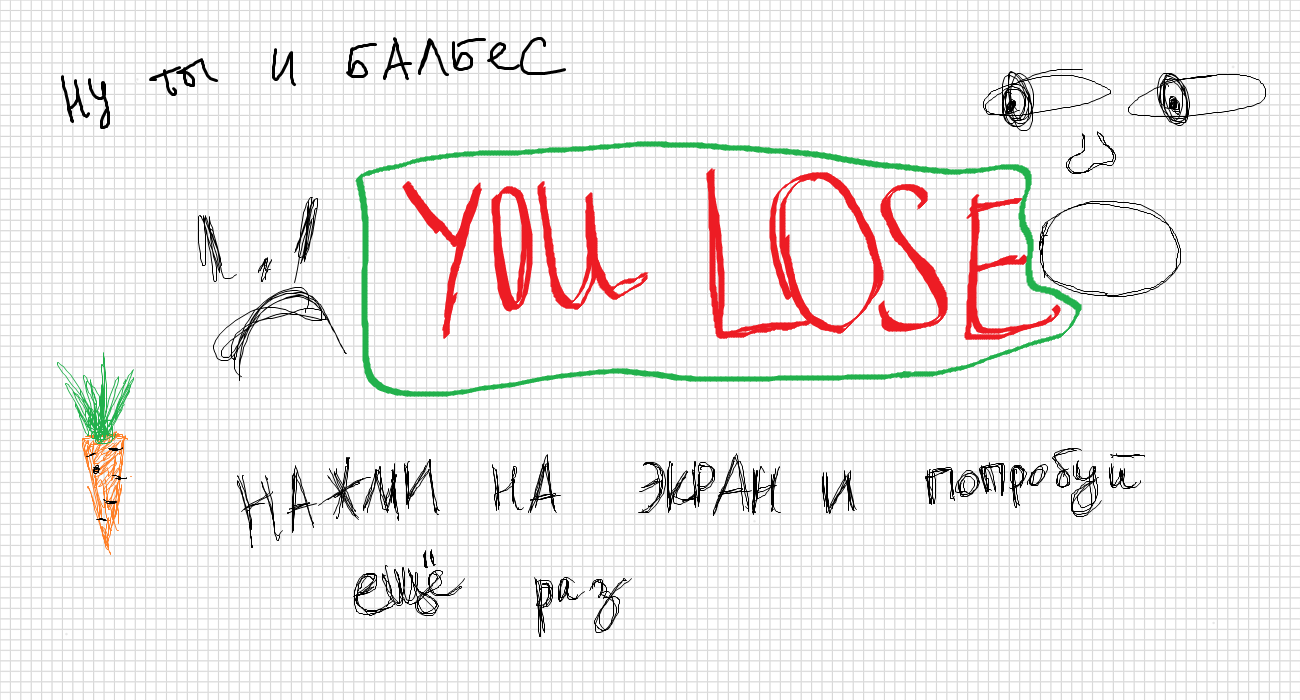 ну ты и БАЛБеС
YOU LOSE
НАЖМИ НА ЭКРАН И попробуй
ещё раз